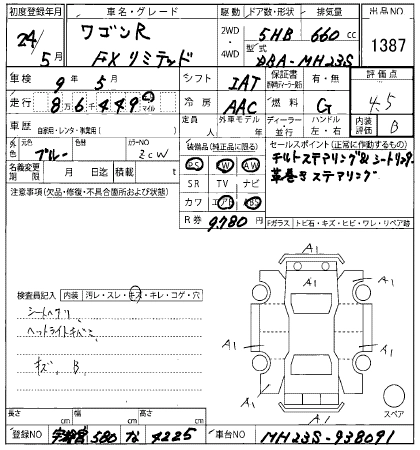 初度登録年月 車名・グレード 駆動 ドア数・形状 排気量 出品NO
24/5月 ワゴンR FXリミテッド 2WD・4WD 5HB 660 cc 1387
型式 DBA-MH23S
車検 9年5月 シフト IAT 保証書 有・無 評価点 4.5
走行 8万6千449 km マイル 冷房 AAC 燃料 G
車歴 自家用・レンタ・事業用( ) 定員 人 外車モデル 年 ディーラー・並行 ハンドル 左・右 内装評価 B
外色 元色 ブルー 色替 カラーNO ZCW 装備品(純正品に限る) セールスポイント(正常に作動するもの)
PS PW AW チルトステアリング&シートリフター
名義変更期限 月 日迄 積載 t SR TV ナビ 革巻きステアリング
注意事項(欠品・修復・不具合箇所および状態) カワ エアB ABS
R券 9,780 円 Fガラス トビ石・キズ・ヒビ・ワレ・リペア跡
A1
A1
A1 A1
検査員記入 内装 汚レ・スレ・キズ・キレ・コゲ・穴
シートヘタリ
ヘッドライトキバミ A1 A1
キズ B
A1
スペア
長さ cm 幅 cm 高さ cm
登録NO 宇都宮 580 な 4225 車台NO MH23S-938091